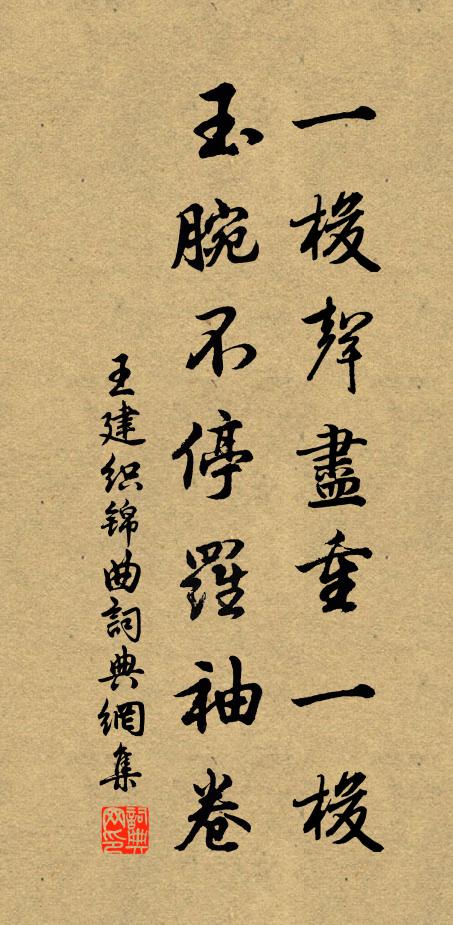 一梭聲盡重一梭
玉腕不停羅袖卷
王建织锦曲詞典網集
詞典网印